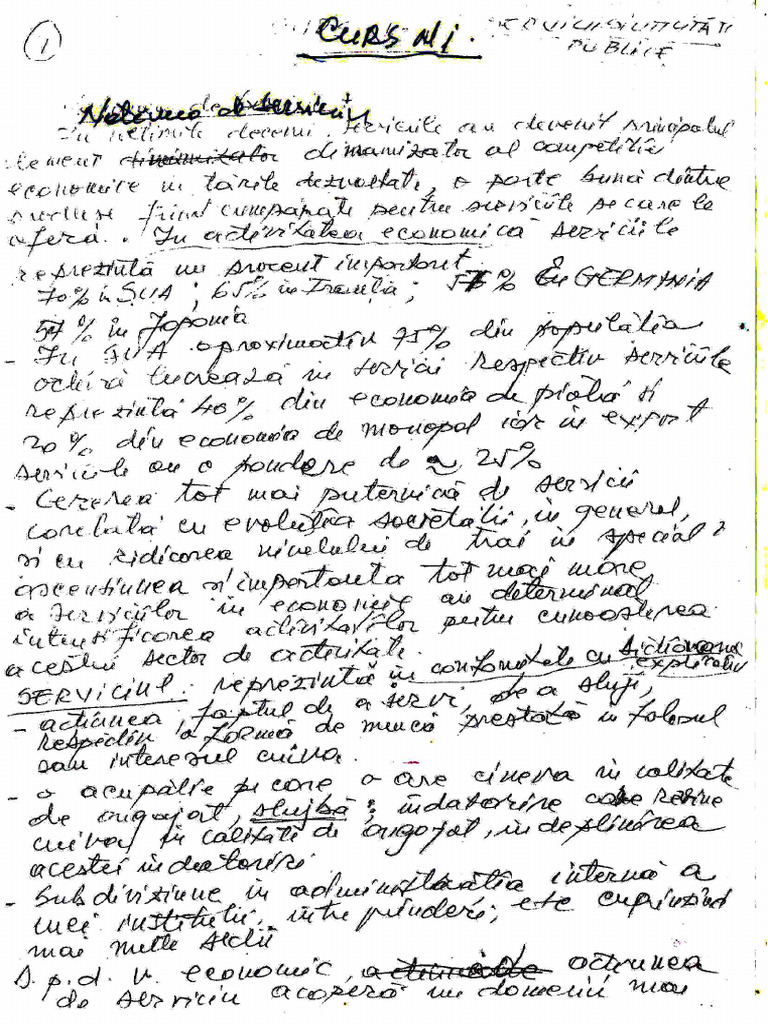 1
CURS N1.
SERVICII SI UTILITĂȚI
PUBLICE
Notiunea de serviciu
In ultimile decenii serviciile au devenit principalul
element dinamizator al competitiei
economice in tările dezvoltate, o parte bună dintre
produse fiind cumpărate pentru serviciile pe care le
oferă. In activitatea economică serviciile
reprezintă un procent important
70% in SUA ; 65% in Franta ; 5 % in GERMANIA
54% in Japonia
- In SUA aproximativ 75% din populatia
activă lucrează in servicii respectiv serviciile
reprezintă 40% din economia de piată si
20% din economia de monopol iar in export
serviciile au o pondere de ≈ 25%
- Cererea tot mai puternică de servicii
corelată cu evolutia societătii, in general,
si cu ridicarea nivelului de trai in special
ascensiunea si importanta tot mai mare
a serviciilor in economie au determinat
intensificarea activitatilor pentru cunoasterea
acestui sector de activitate.
SERVICIUL : reprezintă in conformitate cu dictionarul explicativ
- actiunea, faptul de a servi, de a sluji,
respectiv o formă de muncă prestată in folosul
sau interesul cuiva.
- o ocupatie pe care o are cineva in calitate
de angajat, slujbă ; indatorire ce revine
cuiva in calitate de angajat, indeplinirea
acestei indatoriri
- Subdiviziune in administratia internă a
unei institutii, intreprinderi; ce cuprinzind
mai multe sectii
D.p.d.v. economic, actiunea
de serviciu acoperă un domeniu mai